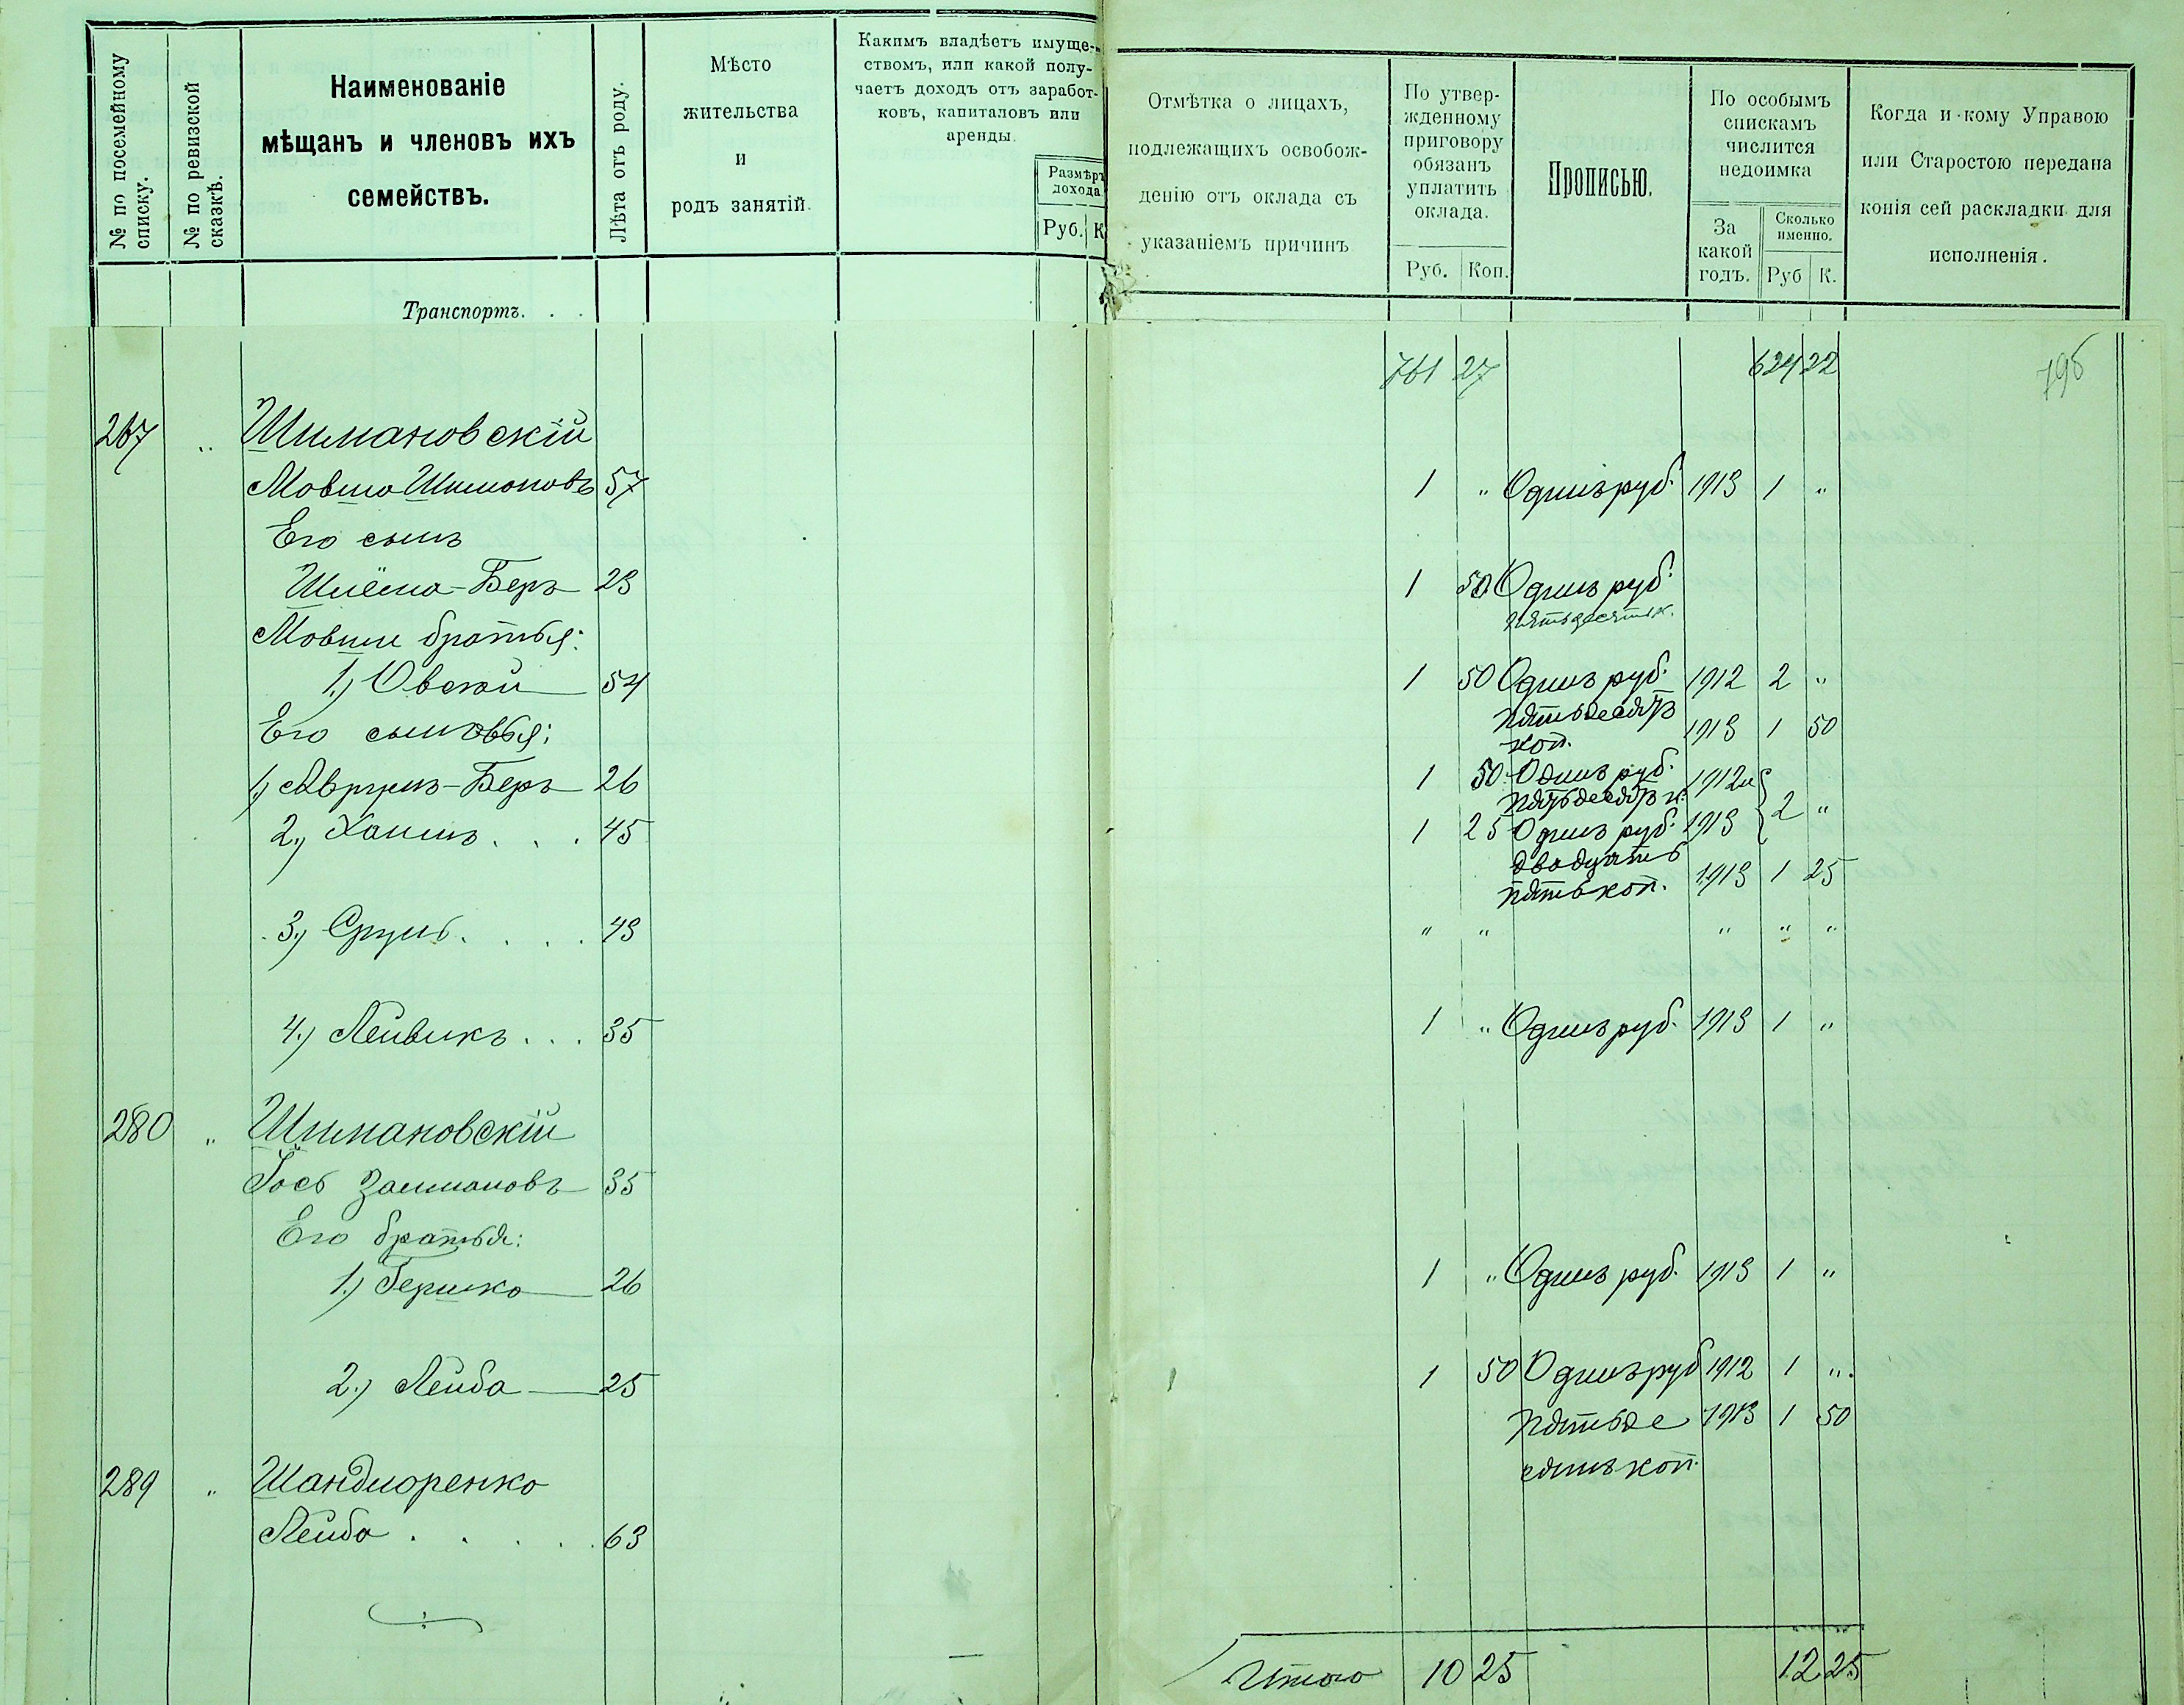 № по посемейному списку.
№ по ревизской сказкѣ.
Наименованіе
мѣщанъ и членовъ ихъ
семействъ.
Лѣта отъ роду.
Мѣсто
жительства
и
родъ занятій.
Какимъ владѣетъ имуще-
ствомъ, или какой полу-
чаетъ доходъ отъ заработ-
ковъ, капиталовъ или
аренды.
Размѣръ
дохода
Руб. К
Отмѣтка о лицахъ,
подлежащихъ освобож-
денію отъ оклада съ
указаніемъ причинъ
По утвер-
жденному
приговору
обязанъ
уплатить
оклада.
Руб. Коп.
Прописью.
По особымъ
спискамъ
числится
недоимка
За
какой
годъ.
Сколько
именно.
Руб К.
Когда и кому Управою
или Старостою передана
копія сей раскладки для
исполненія.
Транспортъ. . .
761 27 624 22
267 " Шимановскій
Мовша Шимановъ 57 1 " Одинъ руб. 1913 1 "
Его сынъ
Шлёма-Беръ 23 1 50 Одинъ руб.
пятьдесятъ к.
Мовши братья:
1.) Овсей 54 1 50 Одинъ руб. 1912 2 "
пятьдесятъ
коп. 1913 1 50
Его сыновья:
1.) Аврумъ-Беръ 26 1 50 Одинъ руб. 1912 и
пятьдесятъ к. 2 "
2.) Хаимъ . . . 45 1 25 Одинъ руб. 1913
двадцать
пять коп. 1913 1 25
3.) Сруль . . . . 43 " " " " "
4.) Лейвикъ . . . 35 1 " Одинъ руб. 1913 1 "
280 " Шимановскій
Іось Залмановъ 35
Его братья:
1.) Гершко 26 1 " Одинъ руб. 1913 1 "
2.) Лейба 25 1 50 Одинъ руб 1912 1 "
пятьде 1913 1 50
сятъ коп.
289 " Шандиоренко
Лейба . . . . . 63
Итого 10 25 12 25